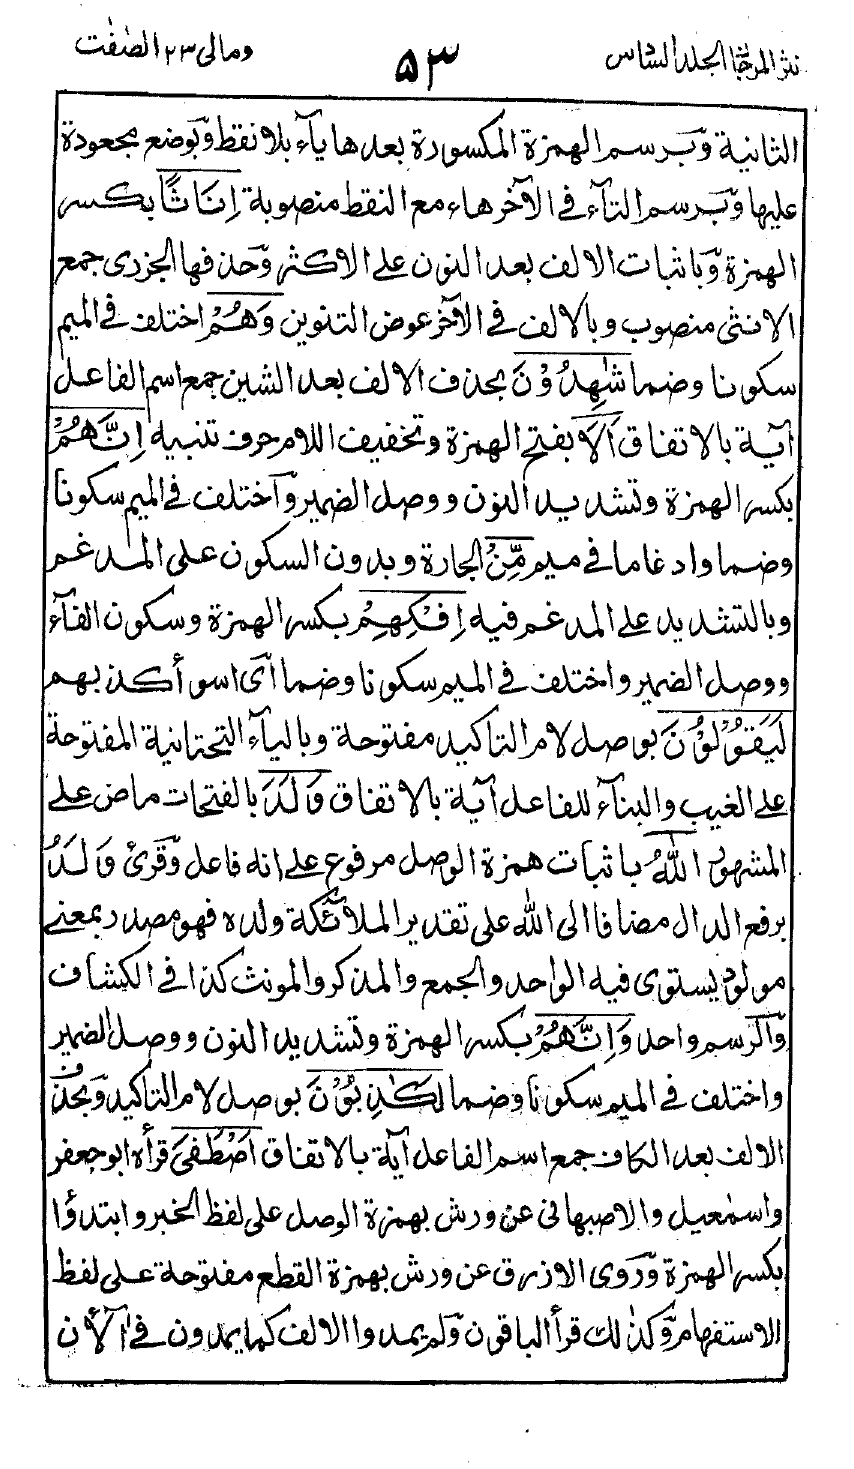 نثر المرجان الجلد السادس ٥٣ ومالى ٢٣ الصّٰفٰت
الثانية وَبرسم الهمزة المكسورة بعدها يآء بلا نقط وَبوضع مجعودة
عليها وَبرسم التآء فى الآخر هاء مع النقط منصوبة اِنَاثًا بكسر
الهمزة وَباثبات الالف بعد النون على الاكثر وَحذفها الجزرى جمع
الانثى منصوب وبالالف فى الآخر عوض التنوين وَهُمْ اختلف فى الميم
سكونا وضما شٰهِدُوْنَ بحذف الالف بعد الشين جمع اسم الفاعل
آية بالاتفاق اَلَآ بفتح الهمزة وتخفيف اللام حرف تنبيه اِنَّهُمْ
بكسر الهمزة وتشديد النون ووصل الضمير وَاختلف فى الميم سكونا
وضما وادغاما فى ميم مِّنْ الجارة وبدون السكون على المدغم
وبالتشديد على المدغم فيه اِفْكِهِمْ بكسر الهمزة وسكون الفآء
ووصل الضمير واختلف فى الميم سكونا وضما اى اسوأ كذبهم
لَيَقُوْلُوْنَ بوصل لام التاكيد مفتوحة وباليآء التحتانية المفتوحة
على الغيب والبنآء للفاعل آية بالاتفاق وَلَدَ بالفتحات ماض على
المشهور اللّٰهُ باثبات همزة الوصل مرفوع على انه فاعل وَقرئ وَلَدُ
برفع الدال مضافا الى الله على تقدير الملآئكة ولده فهو مصدر بمعنى
مولود يستوى فيه الواحد والجمع والمذكر والمونث كذا فى الكشاف
وَالرسم واحد وَاِنَّهُمْ بكسر الهمزة وتشديد النون ووصل الضمير
واختلف فى الميم سكونا وضما لَكٰذِبُوْنَ بوصل لام التاكيد وَبحذف
الالف بعد الكاف جمع اسم الفاعل آية بالاتفاق اَصْطَفَى قرأه ابو جعفر
واسمٰعيل والاصبهانى عن ورش بهمزة الوصل على لفظ الخبر وابتدؤا
بكسر الهمزة وَروى الازرق عن ورش بهمزة القطع مفتوحة على لفظ
الاستفهام وَكذٰلك قرأ الباقون وَلم يمدوا الالف كما يمدون فى اٰلْاٰن